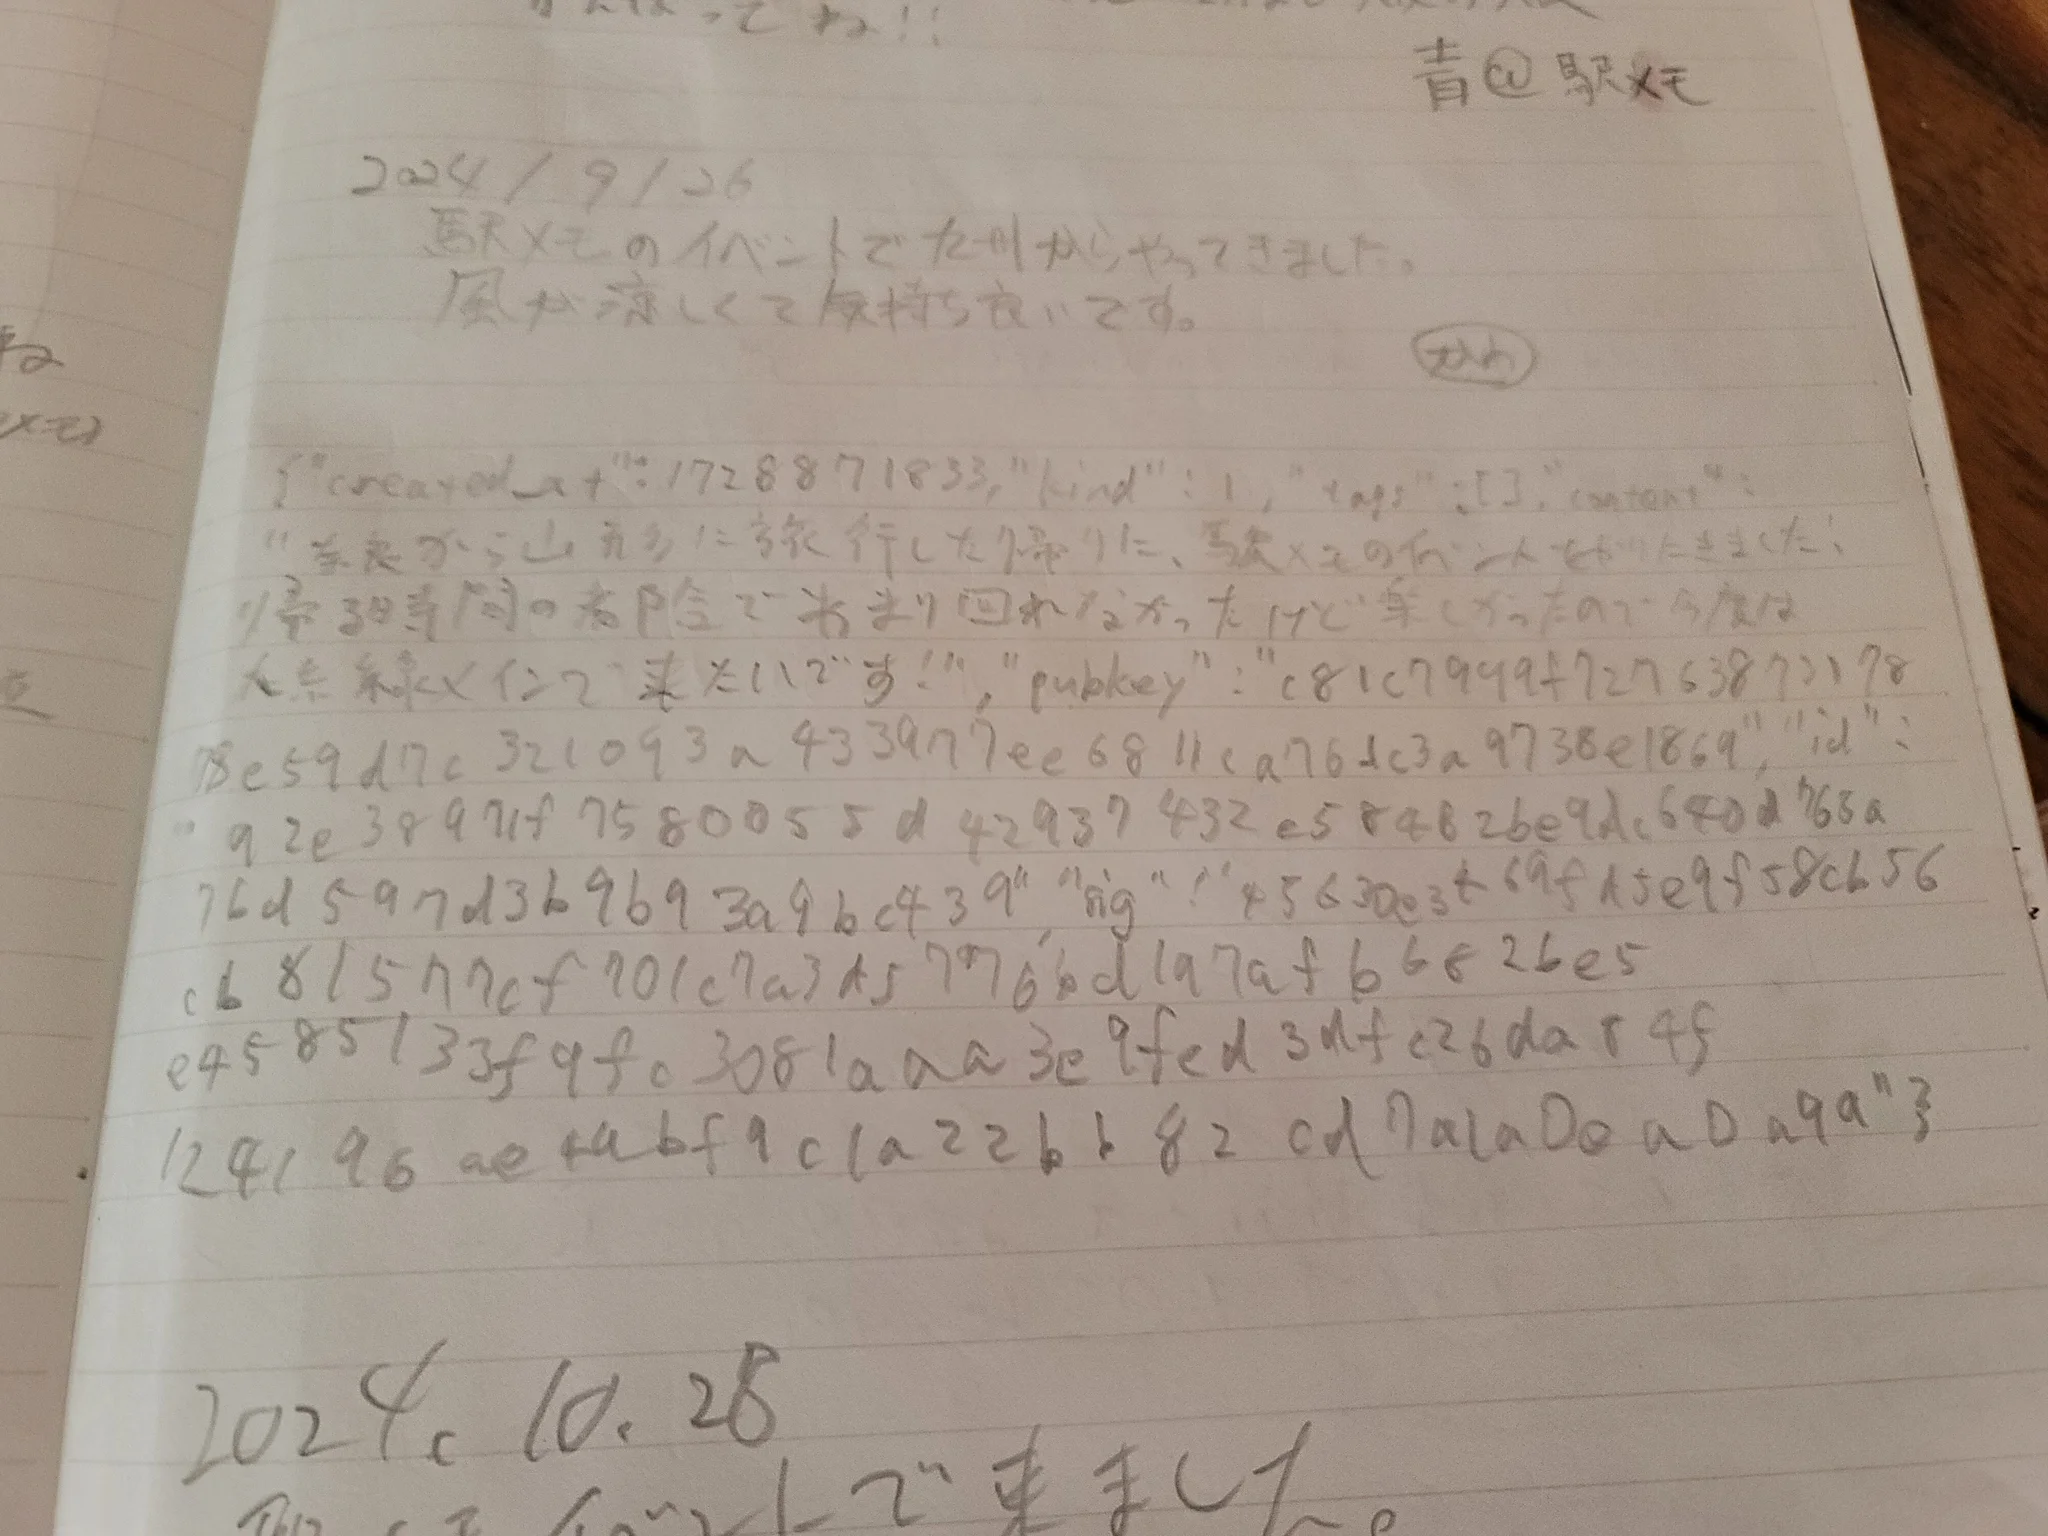 ってね!!
青@駅メモ
2024/9/26
駅メモのイベントで九州からやってきました。
風が涼しくて気持ち良いです。
{"created_at":1728871833,"kind":1,"tags":[],"content":
"奈良から山形に旅行した帰りに、駅メモのイベントをやりにきました!
帰る時間の都合であまり回れなかったけど楽しかったので今度は
メインで来たいです!","pubkey":"c81c7999f72763873178
78e59d7c321093a433977ee6811ca76dc3a9738e1869","id":
"92e38971f7580055d42937432e584826be9dc640d763a
76d597d3b9b93a9bc439","sig":"45630e3f69fd5e9f58cb56
cb815777cf701c7a3d57776bd1a7afb6826be5
e4585133f9fc3081aaa3e9fed3dfc26da84f
124196ae4abf9c1a22bb82cd7a1a00a0a99"}
2024.10.28
イベントで来ました。